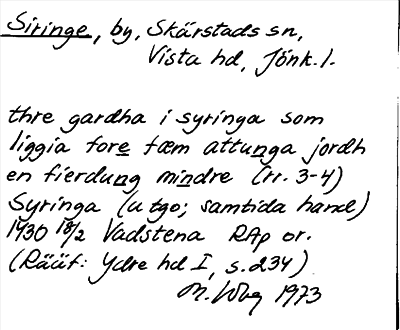 Siringe, by, Skärstads sn,
Vista hd, Jönk. l.
thre gardha i syringa som
liggia fore fæm attunga jordh
en fierdung mindre (rr. 3-4)
Syringa (utgo; samtida hand)
1430 18/2 Vadstena RAp or.
(Räüf: Ydre hd I, s. 234)
M. 1973